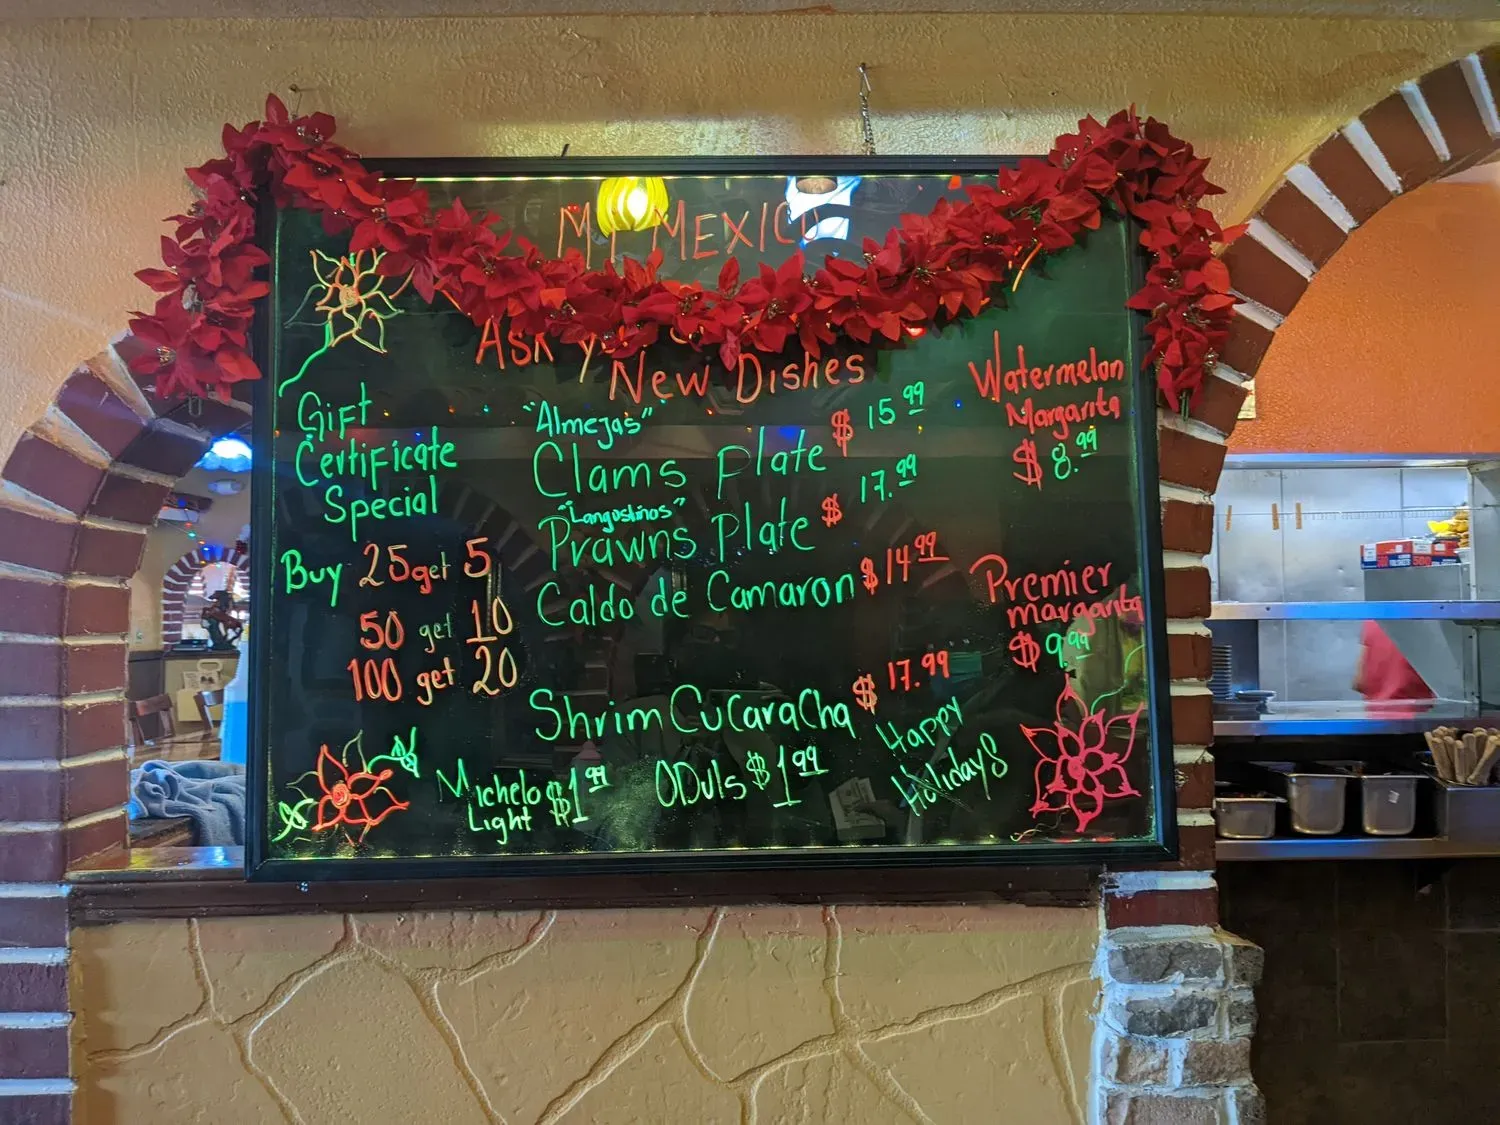 MI MEXICO
Ask
New Dishes
Gift
Certificate
Special
Buy 25 get 5
50 get 10
100 get 20
"Almejas"
Clams Plate $15.99
"Langostinos"
Prawns Plate $17.99
Caldo de Camaron $14.99
Shrim Cucaracha $17.99
Michelo
Light $1.99
ODuls $1.99
Happy
Holidays
Watermelon
Margarita
$8.99
Premier
margarita
$9.99